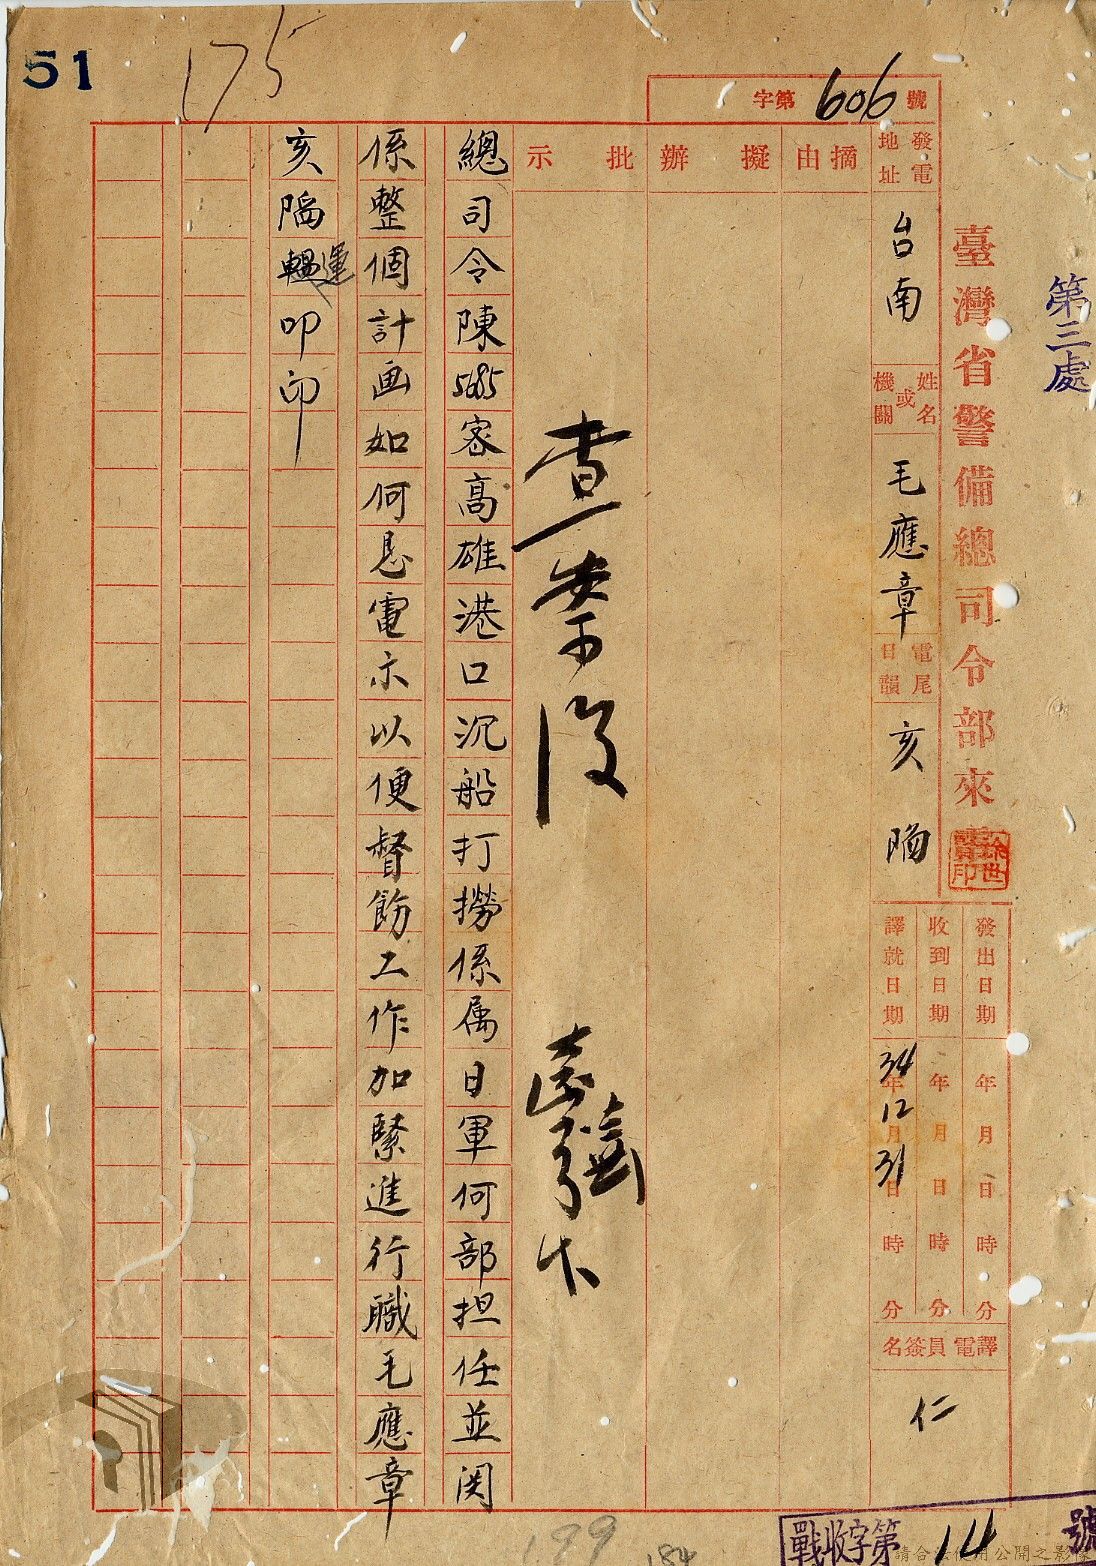 51
175
第三處
臺灣省警備總司令部來電
字第606號
發電地址
台南
姓名或機關
毛應章
電尾日韻
亥 陽
發出日期 年 月 日 時 分
收到日期 年 月 日 時 分
譯就日期 34年12月31日 時 分
譯電員簽名
仁
摘由
擬辦
批示
查案後
總司令陳5685密高雄港口沉船打撈係属日軍何部担任並関
係整個計画如何息電示以便督飭工作加緊進行職毛應章
亥陽運叩印
199
184
戰收字第14號
請合法使用公開之影像